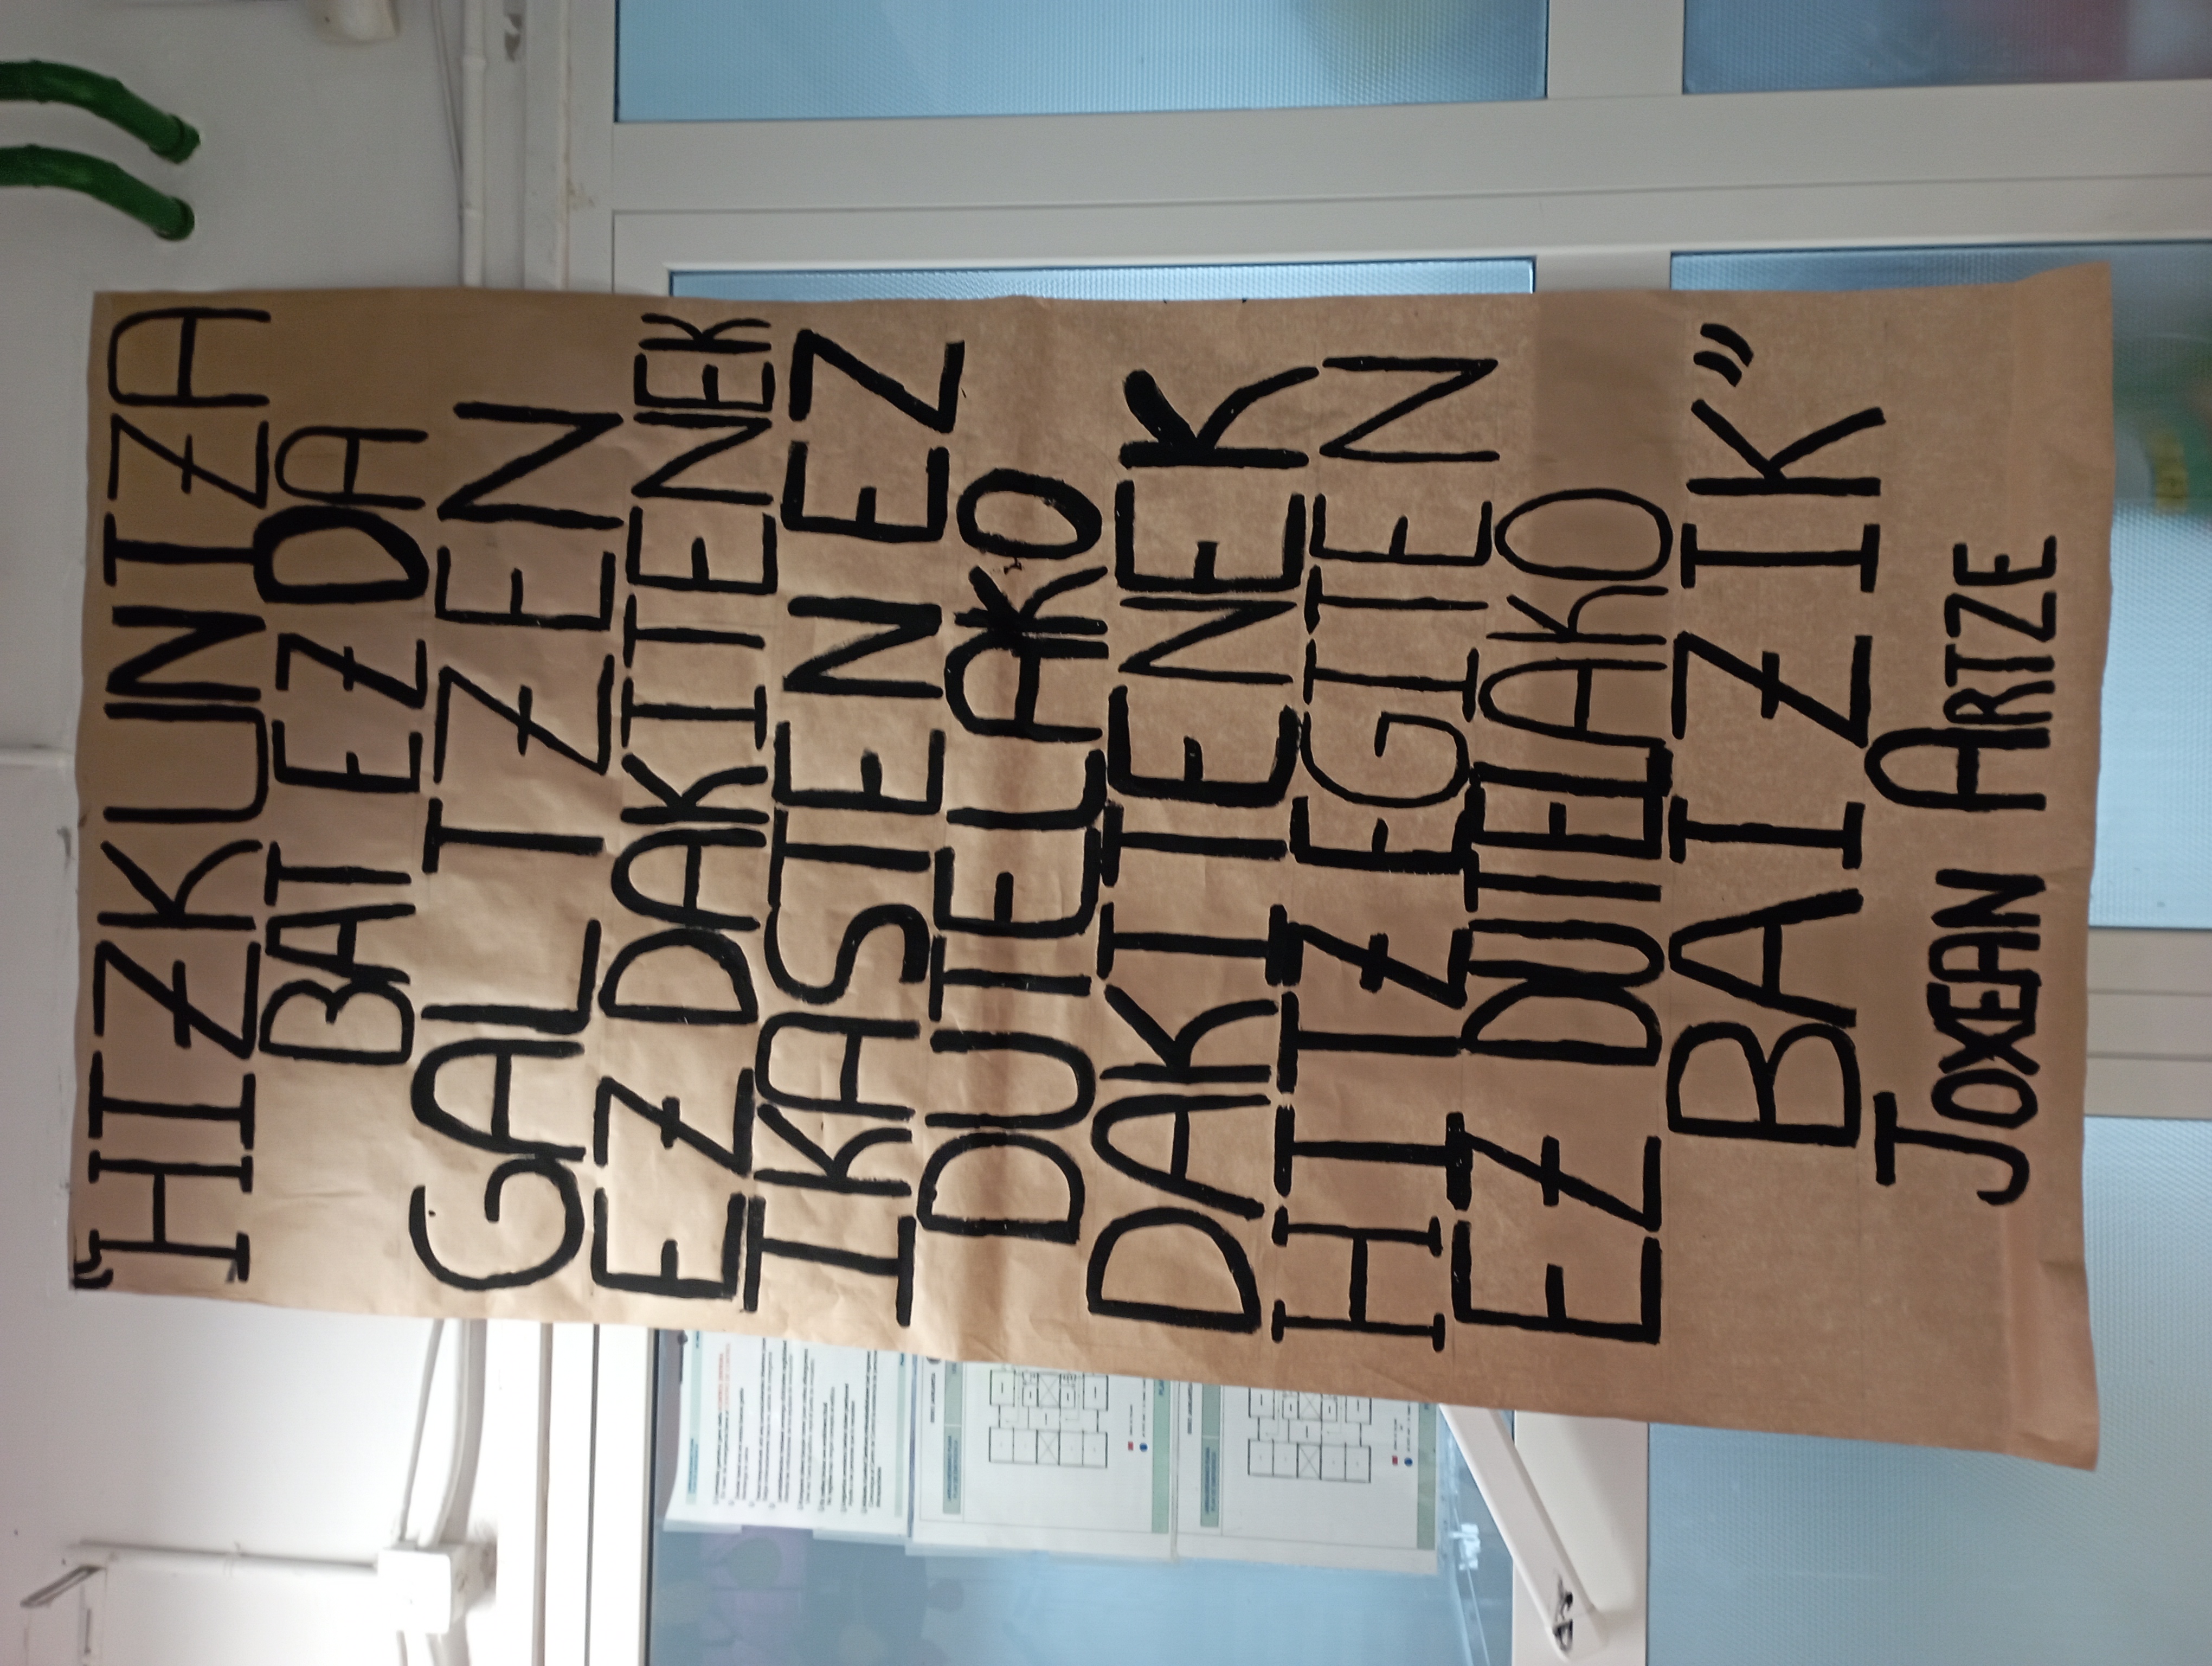 "HIZKUNTZA
BAT EZ DA
GALTZEN
EZ DAKITENEK
IKASTEN EZ
DUTELAKO
DAKITENEK
HITZ EGITEN
EZ DUTELAKO
BAIZIK"
JOXEAN ARTZE